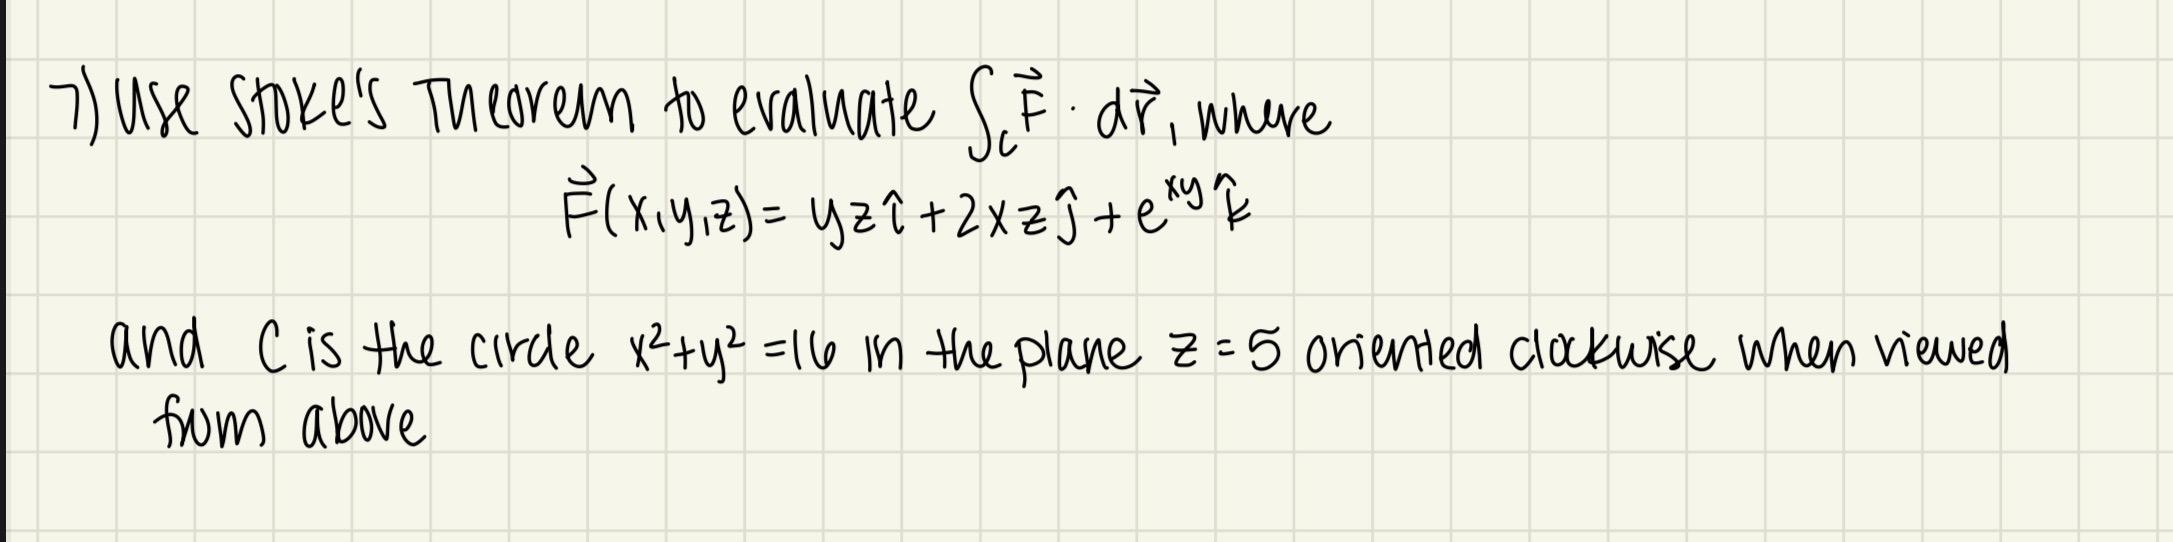 7) Use Stoke's Theorem to evaluate ∫_C F⃗ · dr⃗, where
F⃗(x,y,z) = yz î + 2xz ĵ + e^{xy} k̂
and C is the circle x² + y² = 16 in the plane z = 5 oriented clockwise when viewed
from above